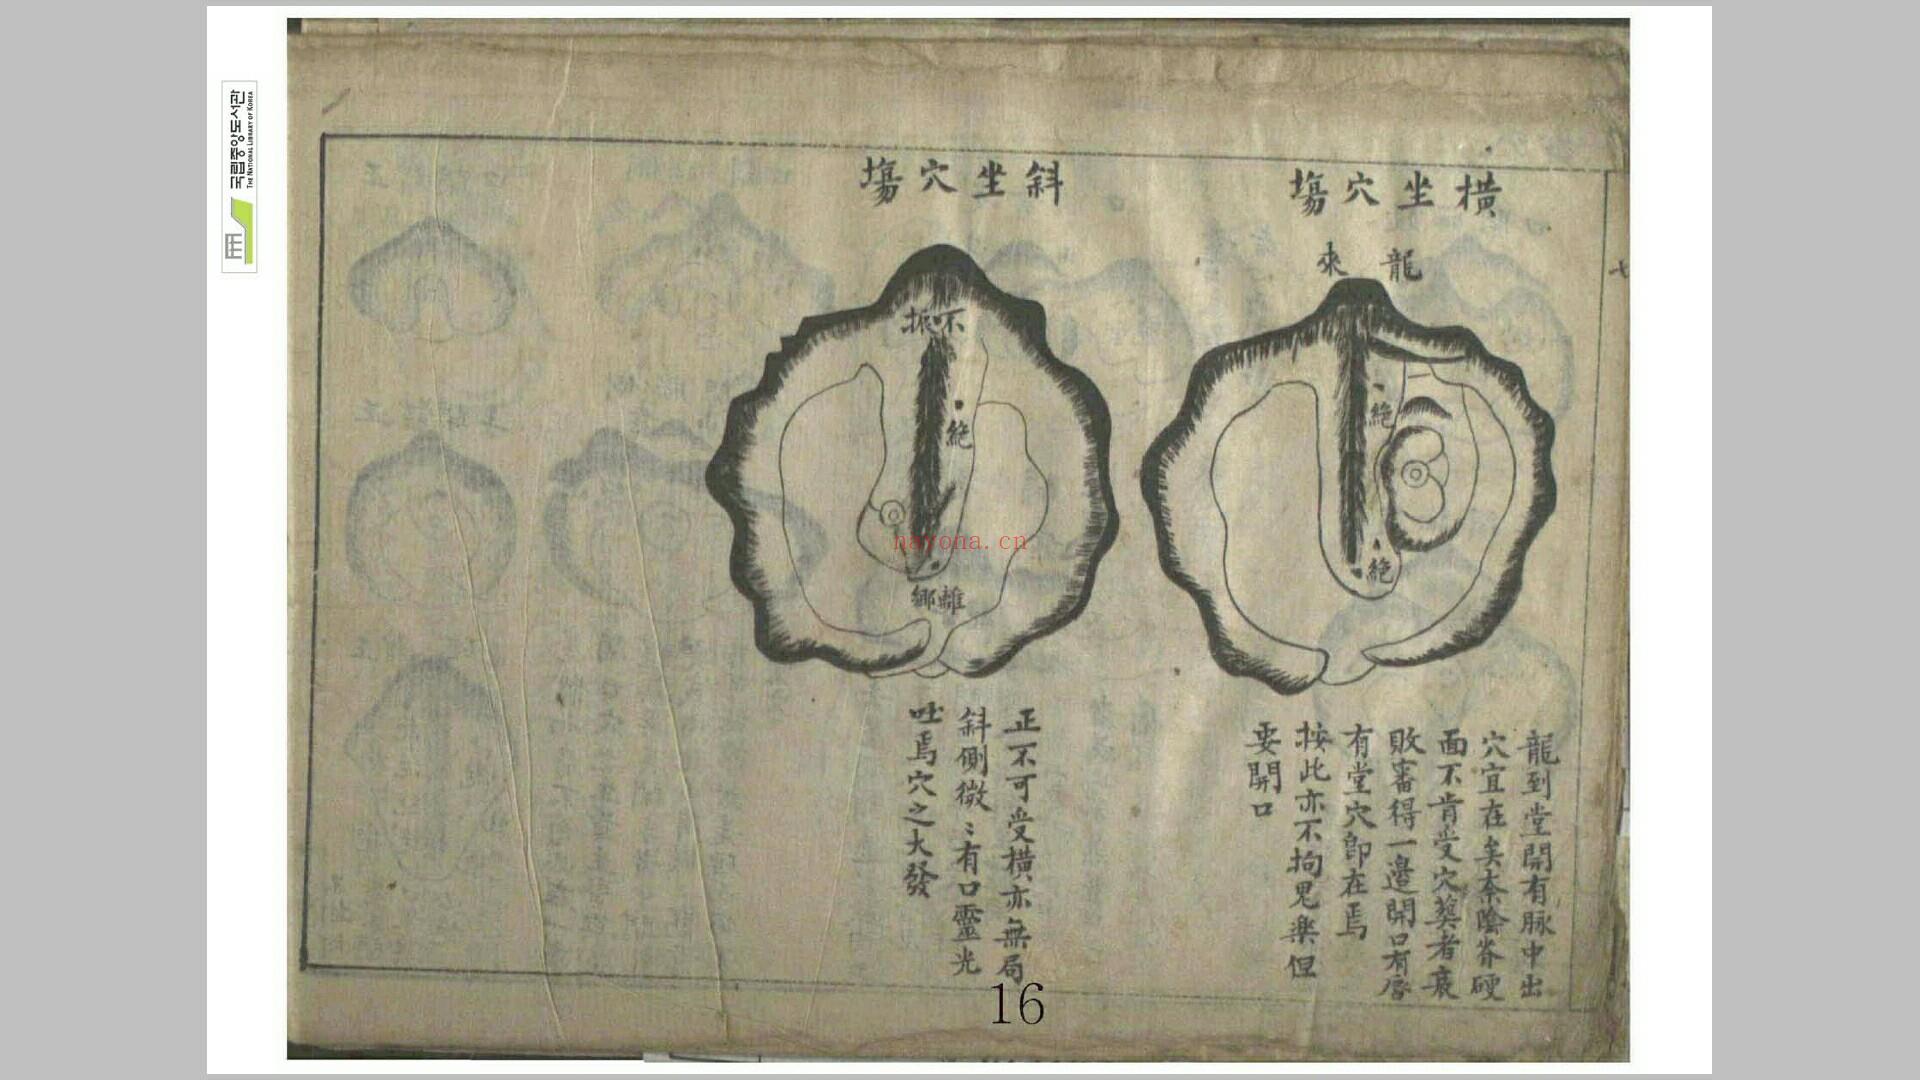 橫坐穴塲
龍來
絶
絶
龍到堂開有脉中出
穴宜在矣柰陰脊硬
面不肯受穴葬者衰
敗審得一邉開口有唇
有堂穴即在焉
按此亦不拘鬼樂但
要開口
斜坐穴塲
不振
絶
離鄉
正不可受橫亦無局
斜側微〻有口靈光
吐焉穴之大發
七
국립중앙도서관
THE NATIONAL LIBRARY OF KOREA
nayona.cn
16